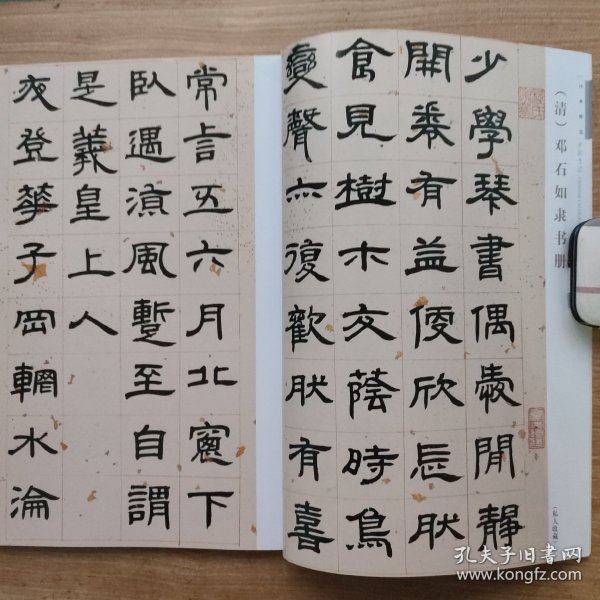 少學琴書偶愛閒靜
開卷有益便欣忘肰
食見樹木交蔭時鳥
變聲亦復歡肰有喜
常言五六月北窻下
臥遇涼風暫至自謂
是羲皇上人
夜登華子岡輞水淪
(清)邓石如隶书册
(私人收藏)
孔夫子旧书网
www.kongfz.com